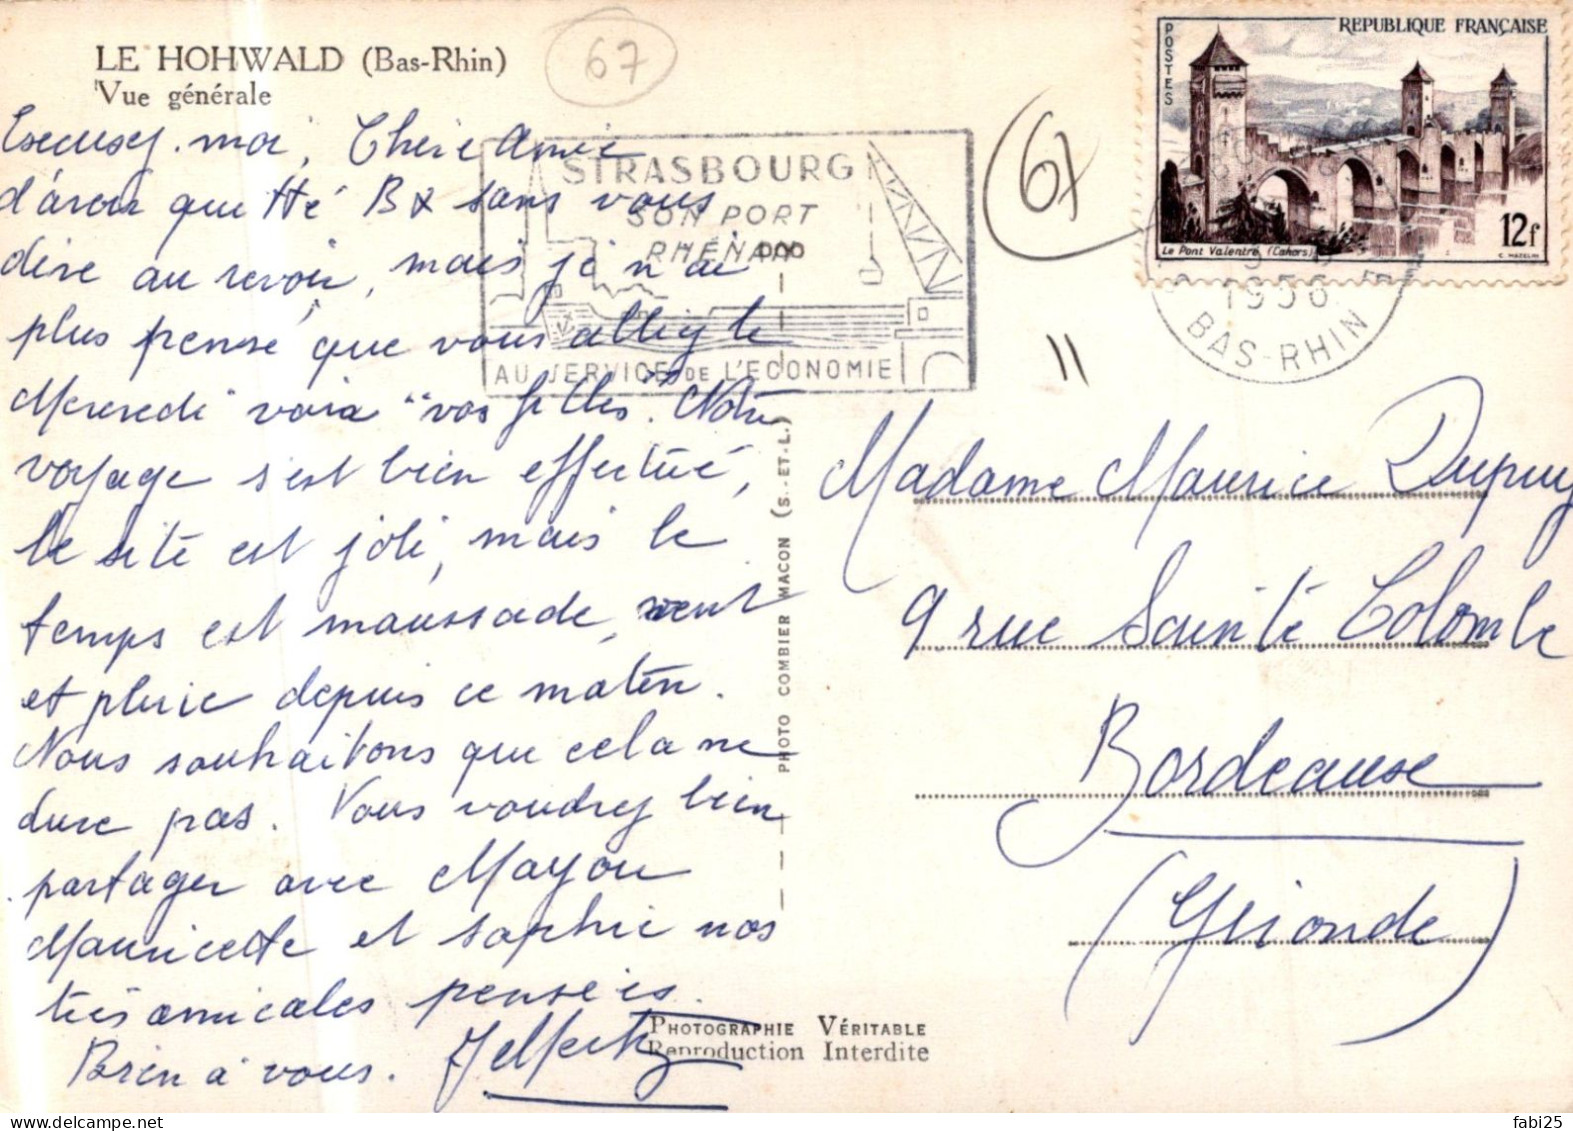 LE HOHWALD (Bas-Rhin)
Vue générale
67
Excusez-moi, Chère Amie
d'avoir quitté Bx sans vous
dire au revoir, mais je n'ai
plus pensé que vous alliez le
Mercredi voir "vos filles". Notre
voyage s'est bien effectué,
le site est joli, mais le
temps est maussade, vent
et pluie depuis ce matin.
Nous souhaitons que cela ne
dure pas. Vous voudrez bien
partager avec Mayou
Mauricette et Sophie nos
très amicales pensées.
Bien à vous.
STRASBOURG
SON PORT
RHÉNAN
AU SERVICE DE L'ECONOMIE
67
REPUBLIQUE FRANÇAISE
POSTES
12f
Le Pont Valentré (Cahors)
C. MAZELIN
1956
BAS-RHIN
11
PHOTO COMBIER MACON (S.-ET-L.)
Madame Maurice Dupuy
9 rue Sainte Colombe
Bordeaux
(Gironde)
PHOTOGRAPHIE VÉRITABLE
Reproduction Interdite
fabi25